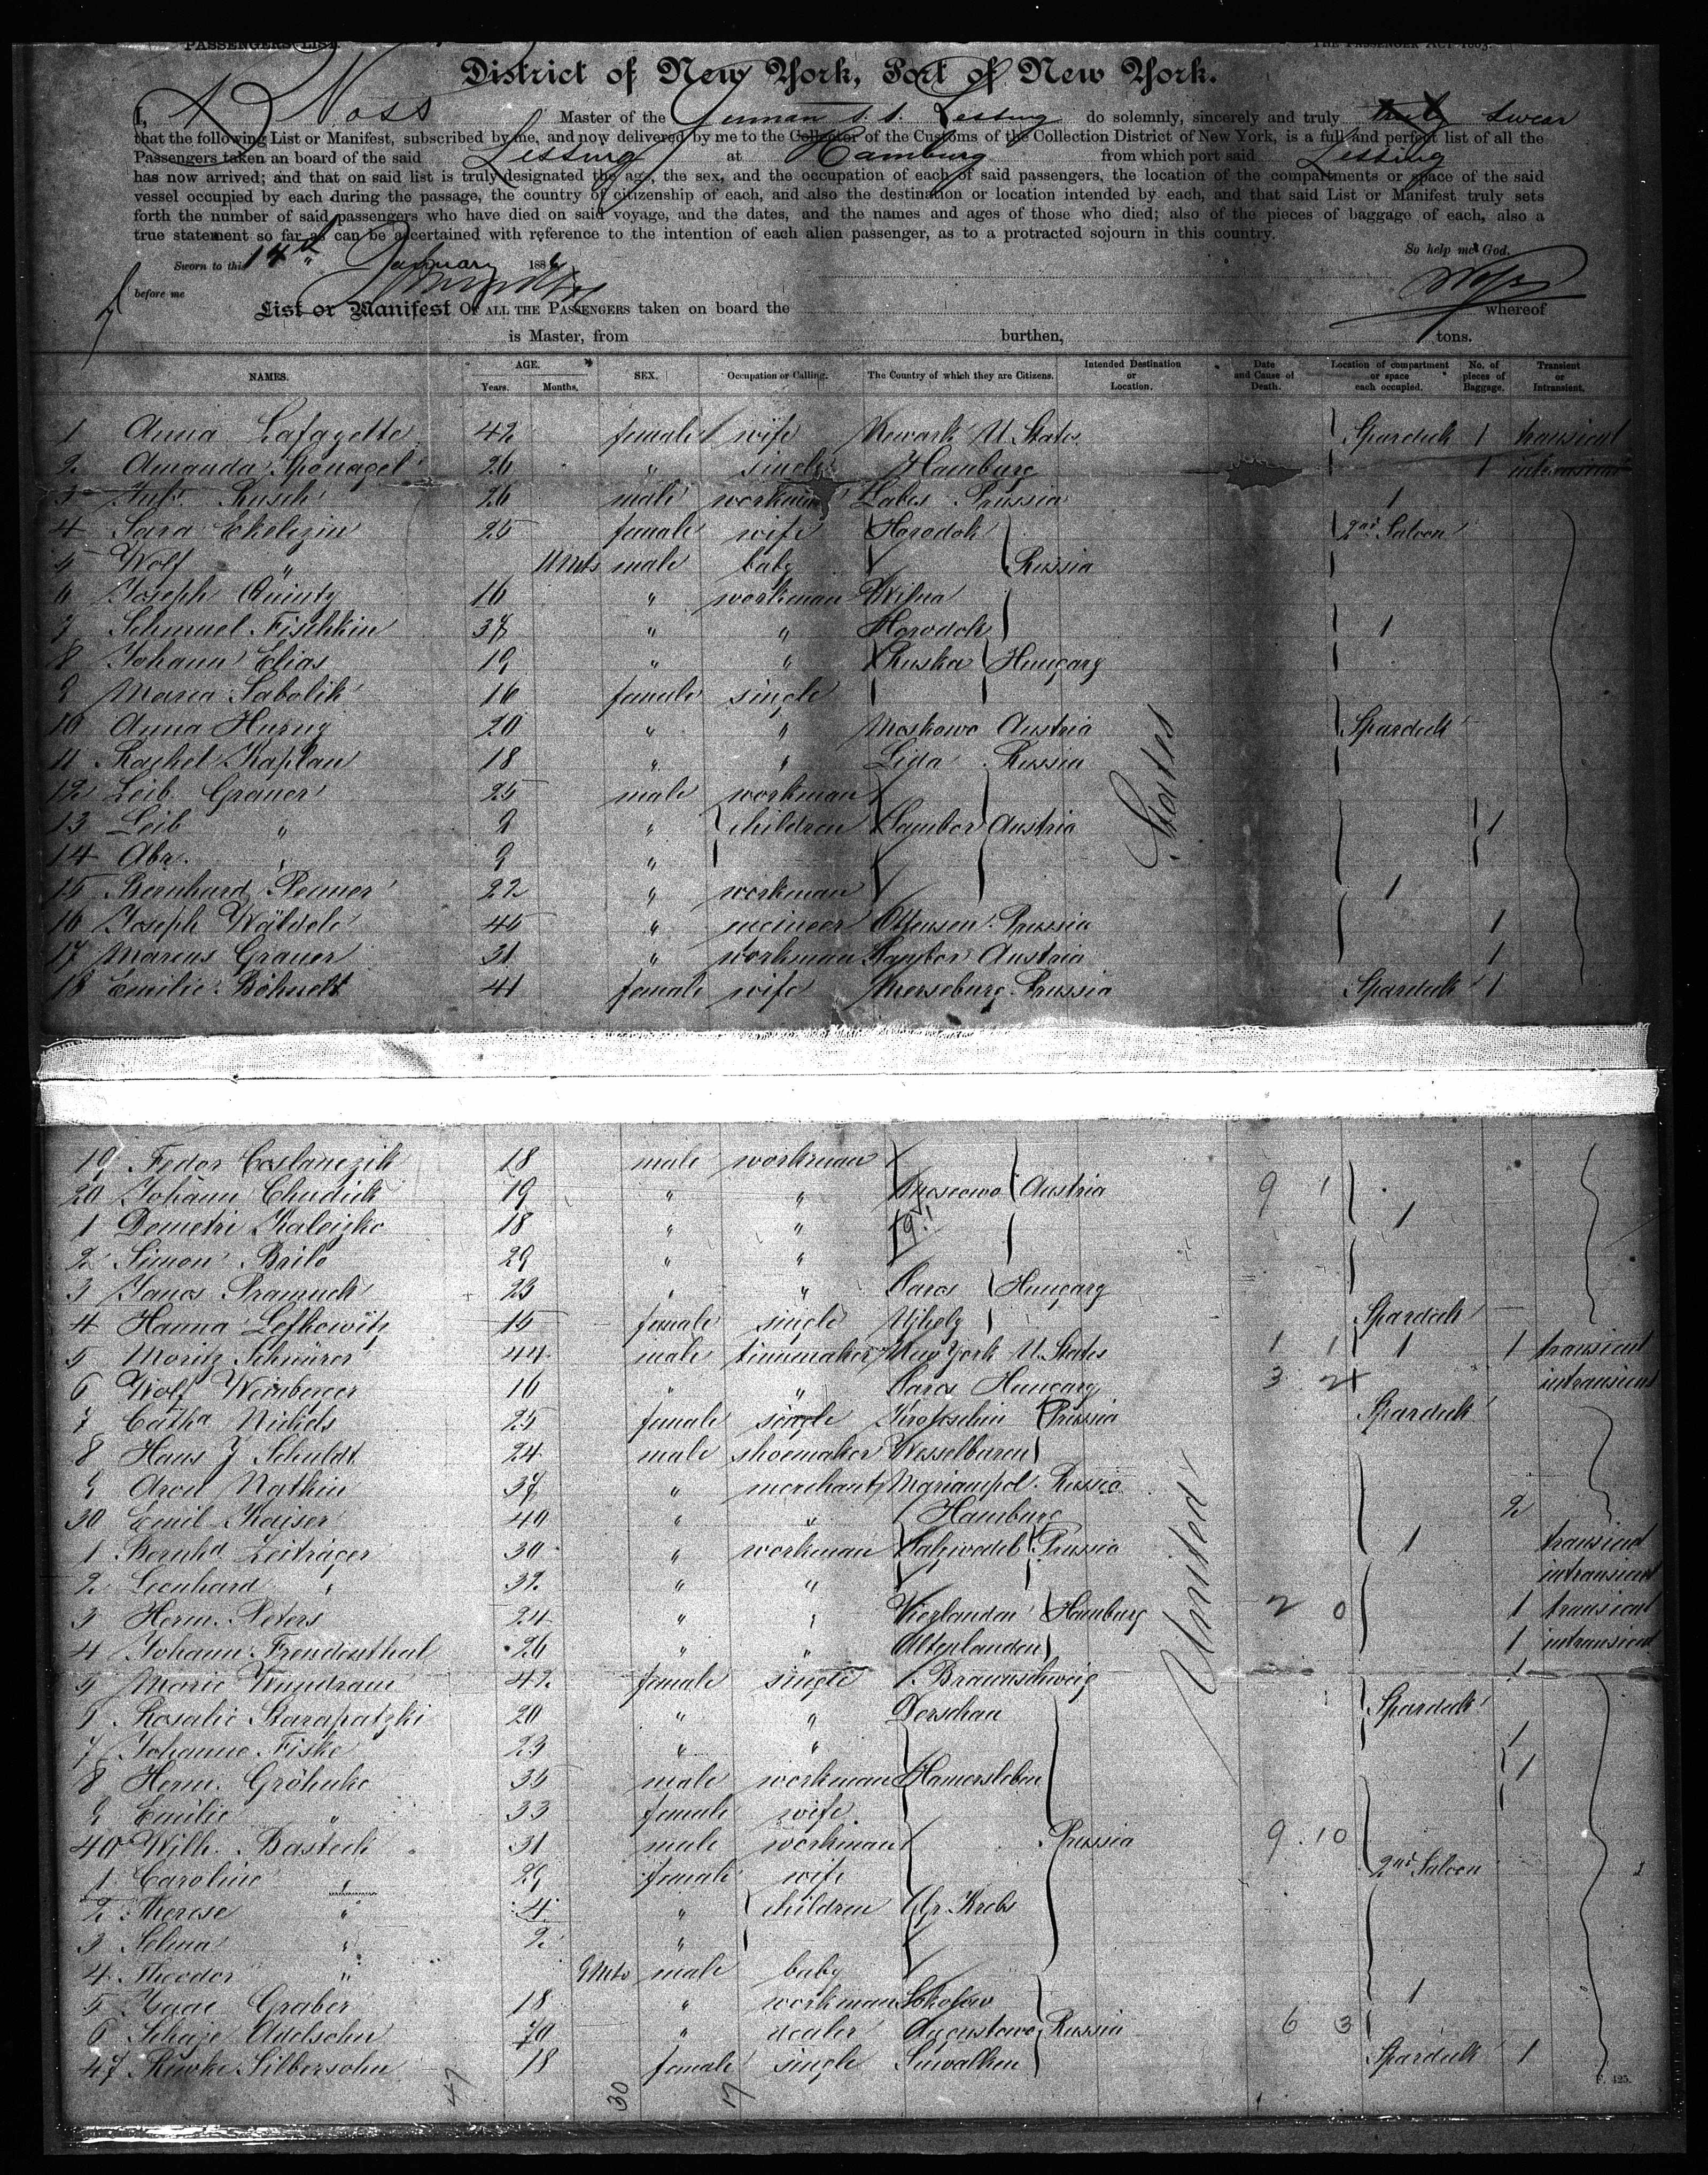 PASSENGERS LIST. THE PASSENGER ACT 1883.
District of New York, Port of New York.
I, A Voss Master of the German S. S. Lessing do solemnly, sincerely and truly swear
that the following List or Manifest, subscribed by me, and now delivered by me to the Collector of the Customs of the Collection District of New York, is a full and perfect list of all the
Passengers taken an board of the said Lessing at Hamburg from which port said Lessing
has now arrived; and that on said list is truly designated the age, the sex, and the occupation of each of said passengers, the location of the compartments or space of the said
vessel occupied by each during the passage, the country of citizenship of each, and also the destination or location intended by each, and that said List or Manifest truly sets
forth the number of said passengers who have died on said voyage, and the dates, and the names and ages of those who died; also of the pieces of baggage of each, also a
true statement so far as can be ascertained with reference to the intention of each alien passenger, as to a protracted sojourn in this country.
So help me God.
Sworn to this 14th January 188
before me
List or Manifest OF ALL THE PASSENGERS taken on board the whereof
is Master, from burthen, tons.
NAMES. AGE. Years. Months. SEX. Occupation or Calling. The Country of which they are Citizens. Intended Destination or Location. Date and Cause of Death. Location of compartment or space each occupied. No. of pieces of Baggage. Transient or Intransient.
1 Anna Lafayette 42 female wife Newark U. States Spardeck 1 transient
2 Amanda Sponagel 26 " single Hamburg 1 intransient
3 Rusch 26 male workman Labes Prussia 1
4 Sara Ekelezin 25 female wife Horodok 2nd Saloon
5 Wolf " 11 Mts male baby Russia
6 Joseph Quinty 16 " workman Wilna
7 Schmuel Fischkin 37 " " Horodok 1
8 Johann Elias 19 " " Ruska Hungary
9 Maria Sabolik 16 female single
10 Anna Hurny 20 " " Moskowo Austria Spardeck
11 Rachel Kaplan 18 " " Lida Russia
12 Leib Grauer 25 male workman
13 Leib " 9 " children Sambor Austria 1
14 Abr. " 9 "
15 Bernhard Renner 22 " workman 1
16 Joseph Wäldele 45 " Ottensen Prussia 1
17 Marcus Grauer 31 " workman Sambor Austria 1
18 Emilie Böhnelt 41 female wife Merseburg Prussia Spardeck 1
States
19 Fedor Coslanczik 18 male workman
20 Johann Chudick 19 " " Austria 9 1
1 Demetri Kaleizko 18 " " 1
2 Simon Brilo 29 " "
3 Janos Sramuck 23 " " Saros Hungary
4 Hanna Lefkowitz 15 female single Ujhely Spardeck
5 Moritz Schwürer 44 male tinnmaker New York U. States 1 1 1 1 transient
6 Wolf Weinberger 16 " " Saros Hungary 3 2 intransient
7 Catha Nickels 25 female single Prussia Spardeck
8 Hans J Schuldt 24 male shoemaker Wesselburen
9 Aron Natkin 37 " merchant Mariampol Russia
30 Emil Kaiser 40 " " Hamburg 2
1 Bernhd. Zeiträger 30 " workman Salzwedel Prussia 1 transient
2 Leonhard " 32 " " intransient
3 Herm. Peters 24 " " Vierlanden Hamburg 2 0 1 transient
4 Johann Freudenthal 26 " " Altenlanden 1 intransient
5 Marie Wundram 42 female single Braunschweig 1
6 Rosalie Starapatzki 20 " " Dorschau Spardeck
7 Johanne Fiske 23 " " 1
8 Herm. Gröhnke 35 male workman Hamersleben 1
9 Emilie " 33 female wife
40 Wilh. Basteck 31 male workman Prussia 9 10
1 Caroline " 29 female wife 2nd Saloon
2 Therese " 4 " children Gr. Krebs
3 Selma " 2 "
4 Theodor " 9 Mts male baby
5 Isaac Graber 18 " workman Sokolow 1
6 Schaje Adelsohn 70 " dealer Augustowo Russia 6 3
47 Riwke Silbersohn 18 female single Suwalken Spardeck 1
United
47 30 17
F. 425.